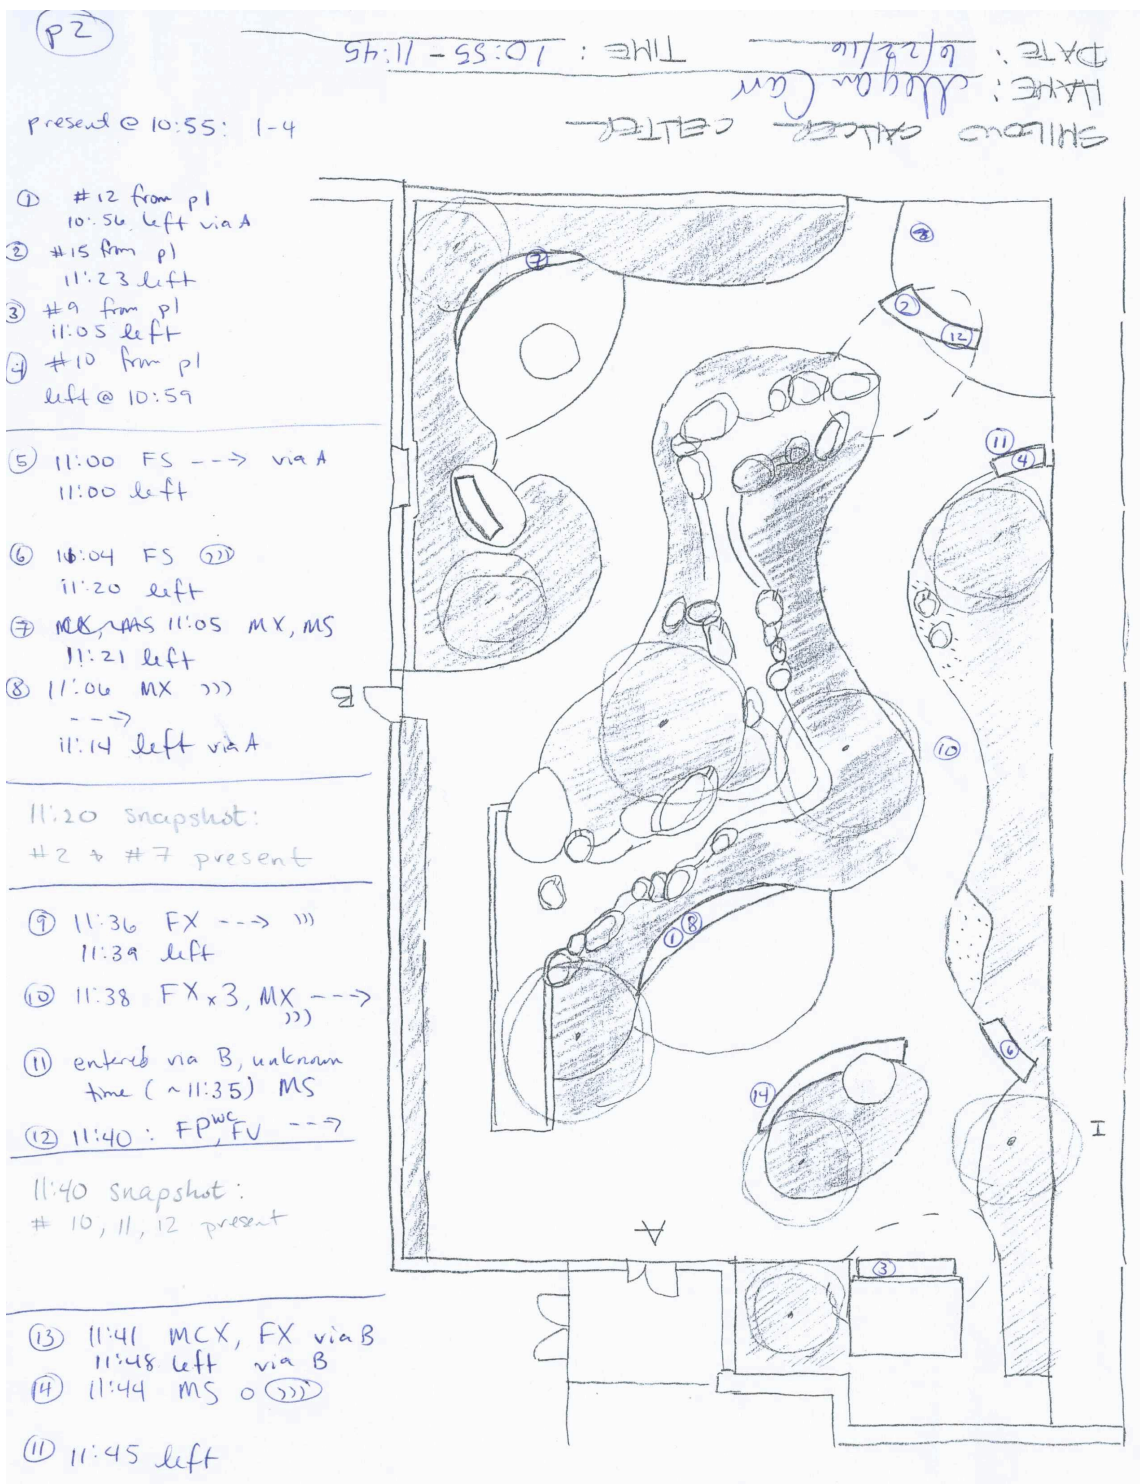 p2
DATE: 6/22/16 TIME: 10:55 - 11:45
NAME: Megan Carr
SMILOW CANCER CENTER
present @ 10:55: 1-4
① #12 from p1
10:56 left via A
② #15 from p1
11:23 left
③ #9 from p1
11:05 left
④ #10 from p1
left @ 10:59
⑤ 11:00 FS ---> via A
11:00 left
⑥ 11:04 FS )))
11:20 left
⑦ 11:05 MX, MS
11:21 left
⑧ 11:06 MX )))
--->
11:14 left via A
11:20 snapshot:
#2 & #7 present
⑨ 11:36 FX ---> )))
11:39 left
⑩ 11:38 FX x 3, MX --->
)))
⑪ entered via B, unknown
time (~11:35) MS
⑫ 11:40: FP WC, FV --->
11:40 snapshot:
# 10, 11, 12 present
⑬ 11:41 MCX, FX via B
11:48 left via B
⑭ 11:44 MS o )))
⑪ 11:45 left
⑦
②
⑫
⑪
④
B
⑩
① ⑧
⑥
⑭
I
A
③